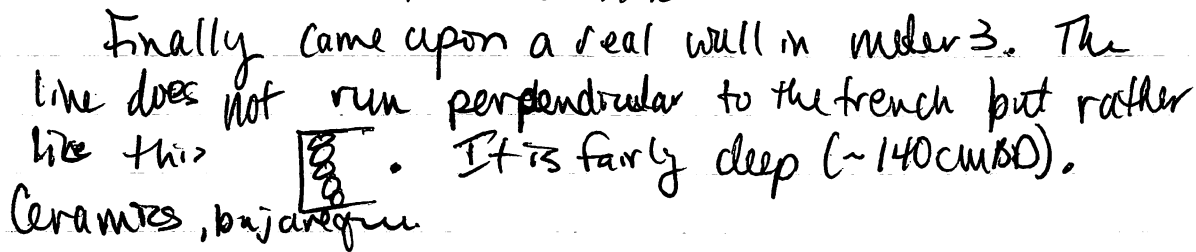 Finally came upon a real wall in meter 3. The
line does not run perpendicular to the trench but rather
like this . It is fairly deep (~140cmBD).
Ceramics, bajareque